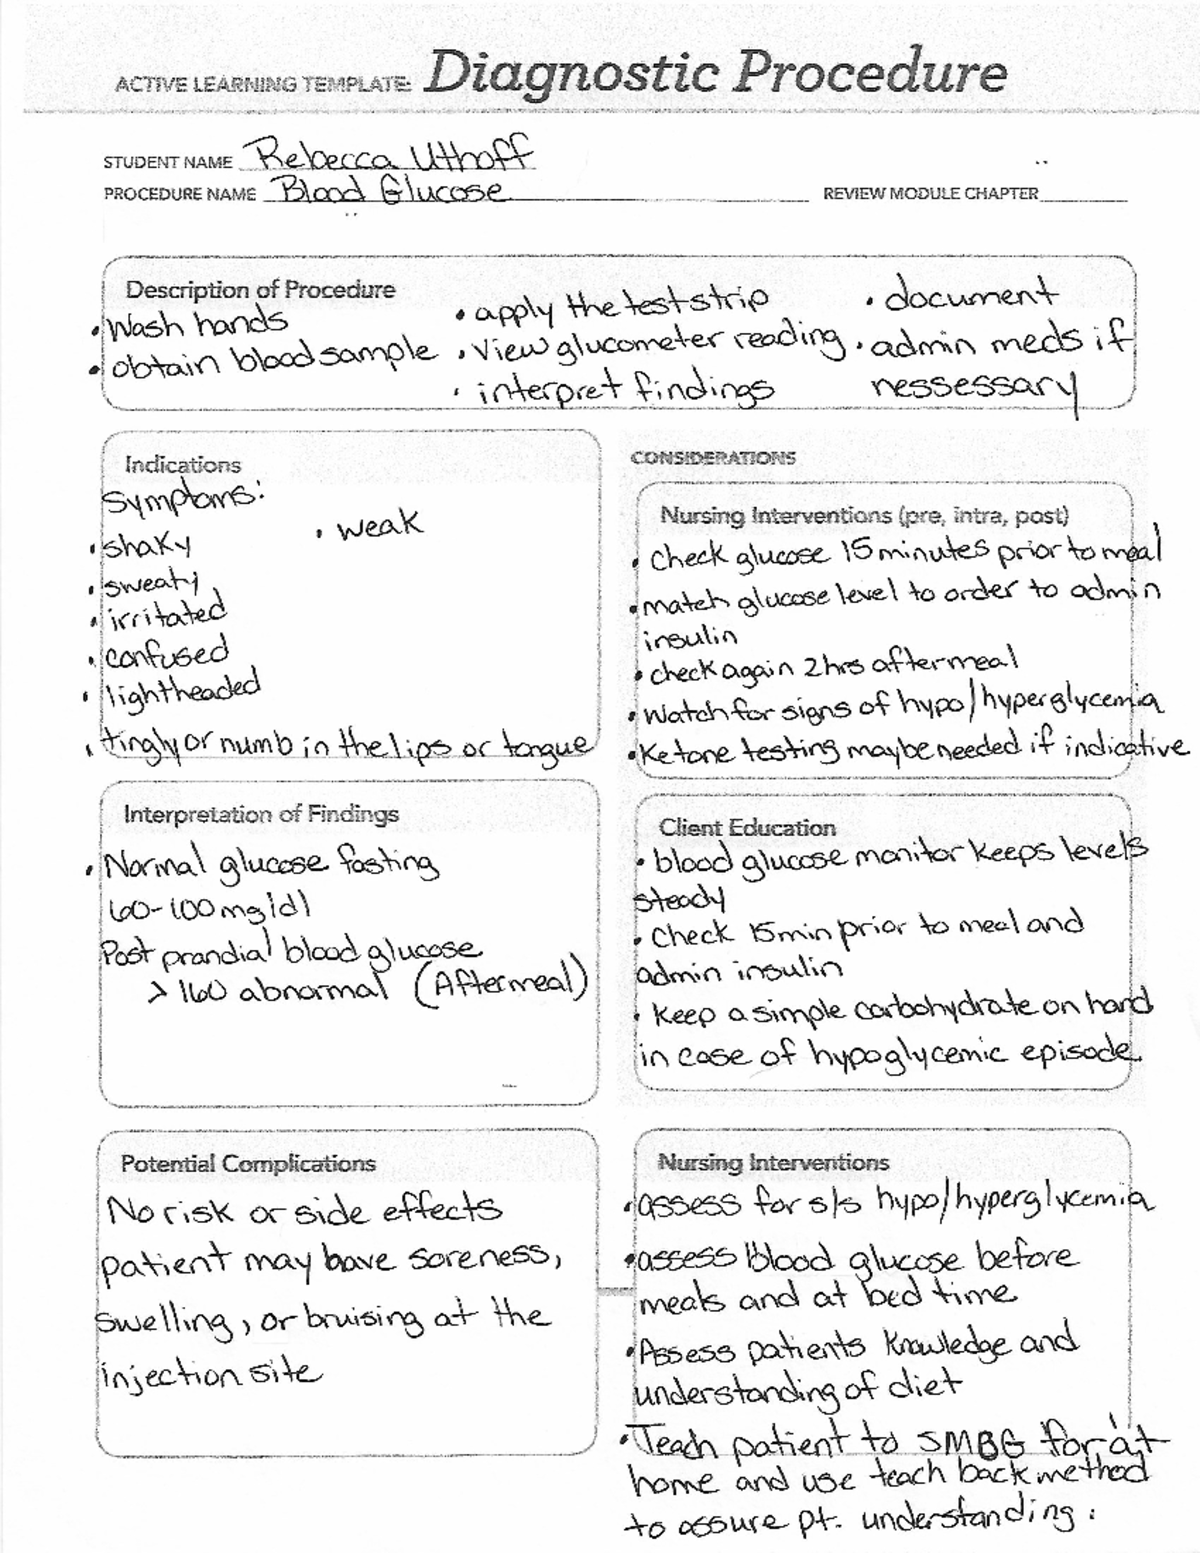 ACTIVE LEARNING TEMPLATE: Diagnostic Procedure
STUDENT NAME Rebecca Uthoff
PROCEDURE NAME Blood Glucose
REVIEW MODULE CHAPTER
Description of Procedure
• Wash hands
• obtain blood sample
• apply the test strip
• View glucometer reading
• interpret findings
• document
• admin meds if
nessessary
Indications
Symptoms:
• shaky
• sweaty
• irritated
• confused
• lightheaded
• tingly or numb in the lips or tongue
• weak
CONSIDERATIONS
Nursing Interventions (pre, intra, post)
• Check glucose 15 minutes prior to meal
• match glucose level to order to admin
insulin
• check again 2hrs after meal
• Watch for signs of hypo/hyperglycemia
• Ketone testing maybe needed if indicative
Interpretation of Findings
• Normal glucose fasting
60-100 mg/dl
Post prandial blood glucose
> 160 abnormal (After meal)
Client Education
• blood glucose monitor keeps levels
steady
• Check 15min prior to meal and
admin insulin
• Keep a simple carbohydrate on hand
in case of hypoglycemic episode.
Potential Complications
No risk or side effects
patient may have soreness,
swelling, or bruising at the
injection site
Nursing Interventions
• assess for s/s hypo/hyperglycemia
• assess blood glucose before
meals and at bed time
• Assess patients knowledge and
understanding of diet
• Teach patient to SMBG for at
home and use teach back method
to assure pt. understanding.